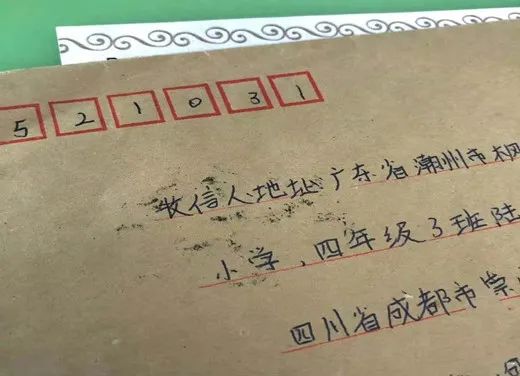 521031
收信人地址广东省潮州市枫
小学，四年级3班陆
四川省成都市崇